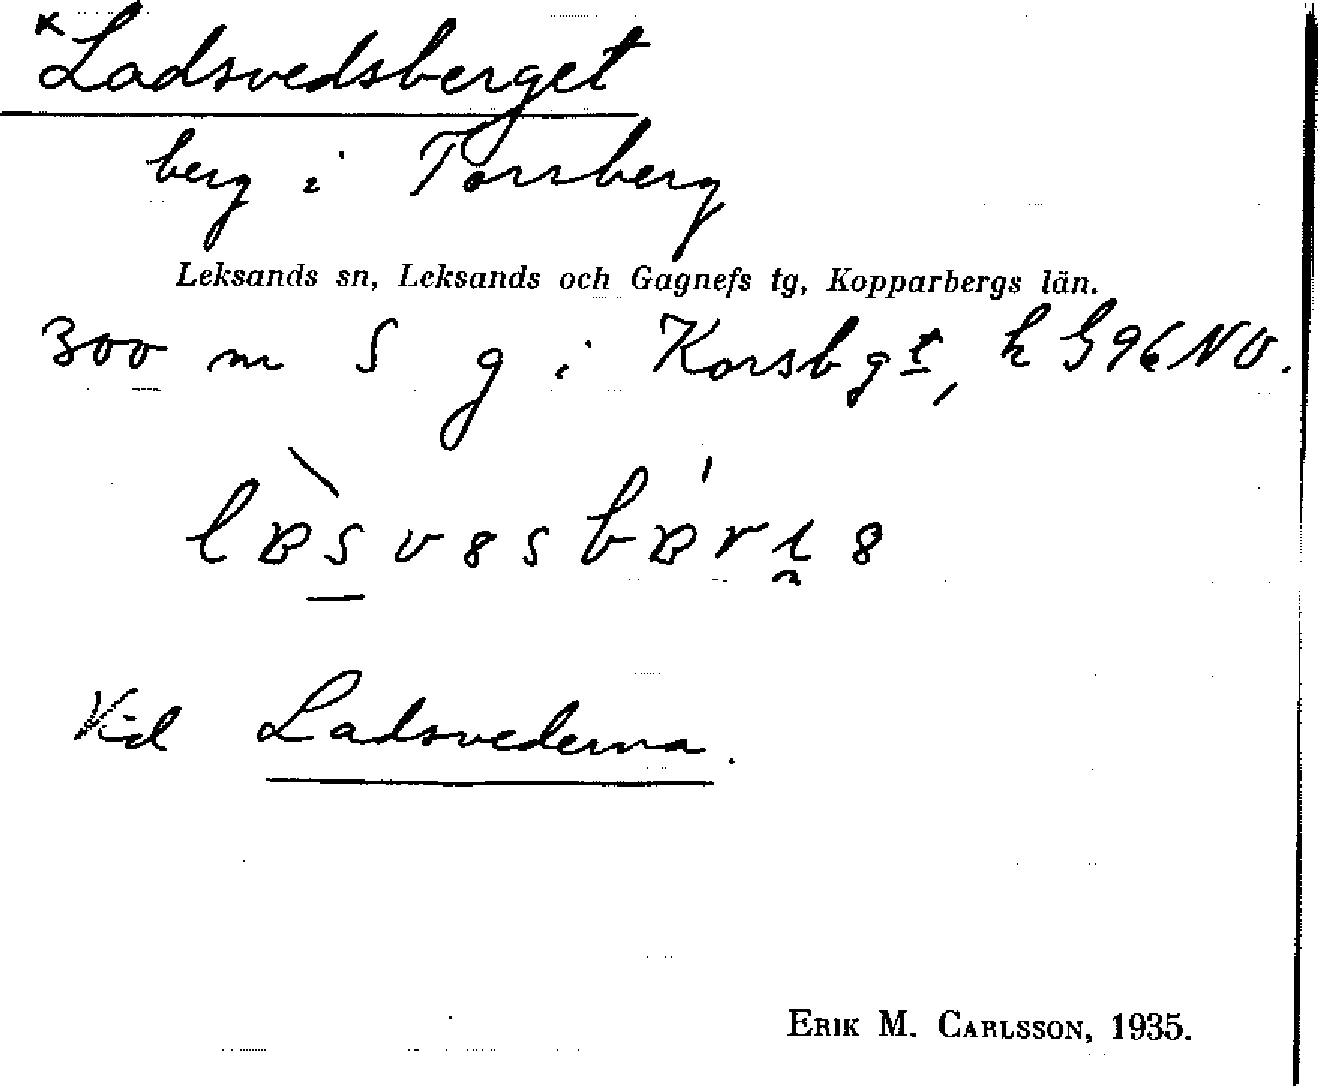 K Ladsvedsberget
berg i Torrberg
Leksands sn, Leksands och Gagnefs tg, Kopparbergs län.
300 m S g i Korsbgt, k G96NO.
Vid Ladsvederna.
ERIK M. CARLSSON, 1935.